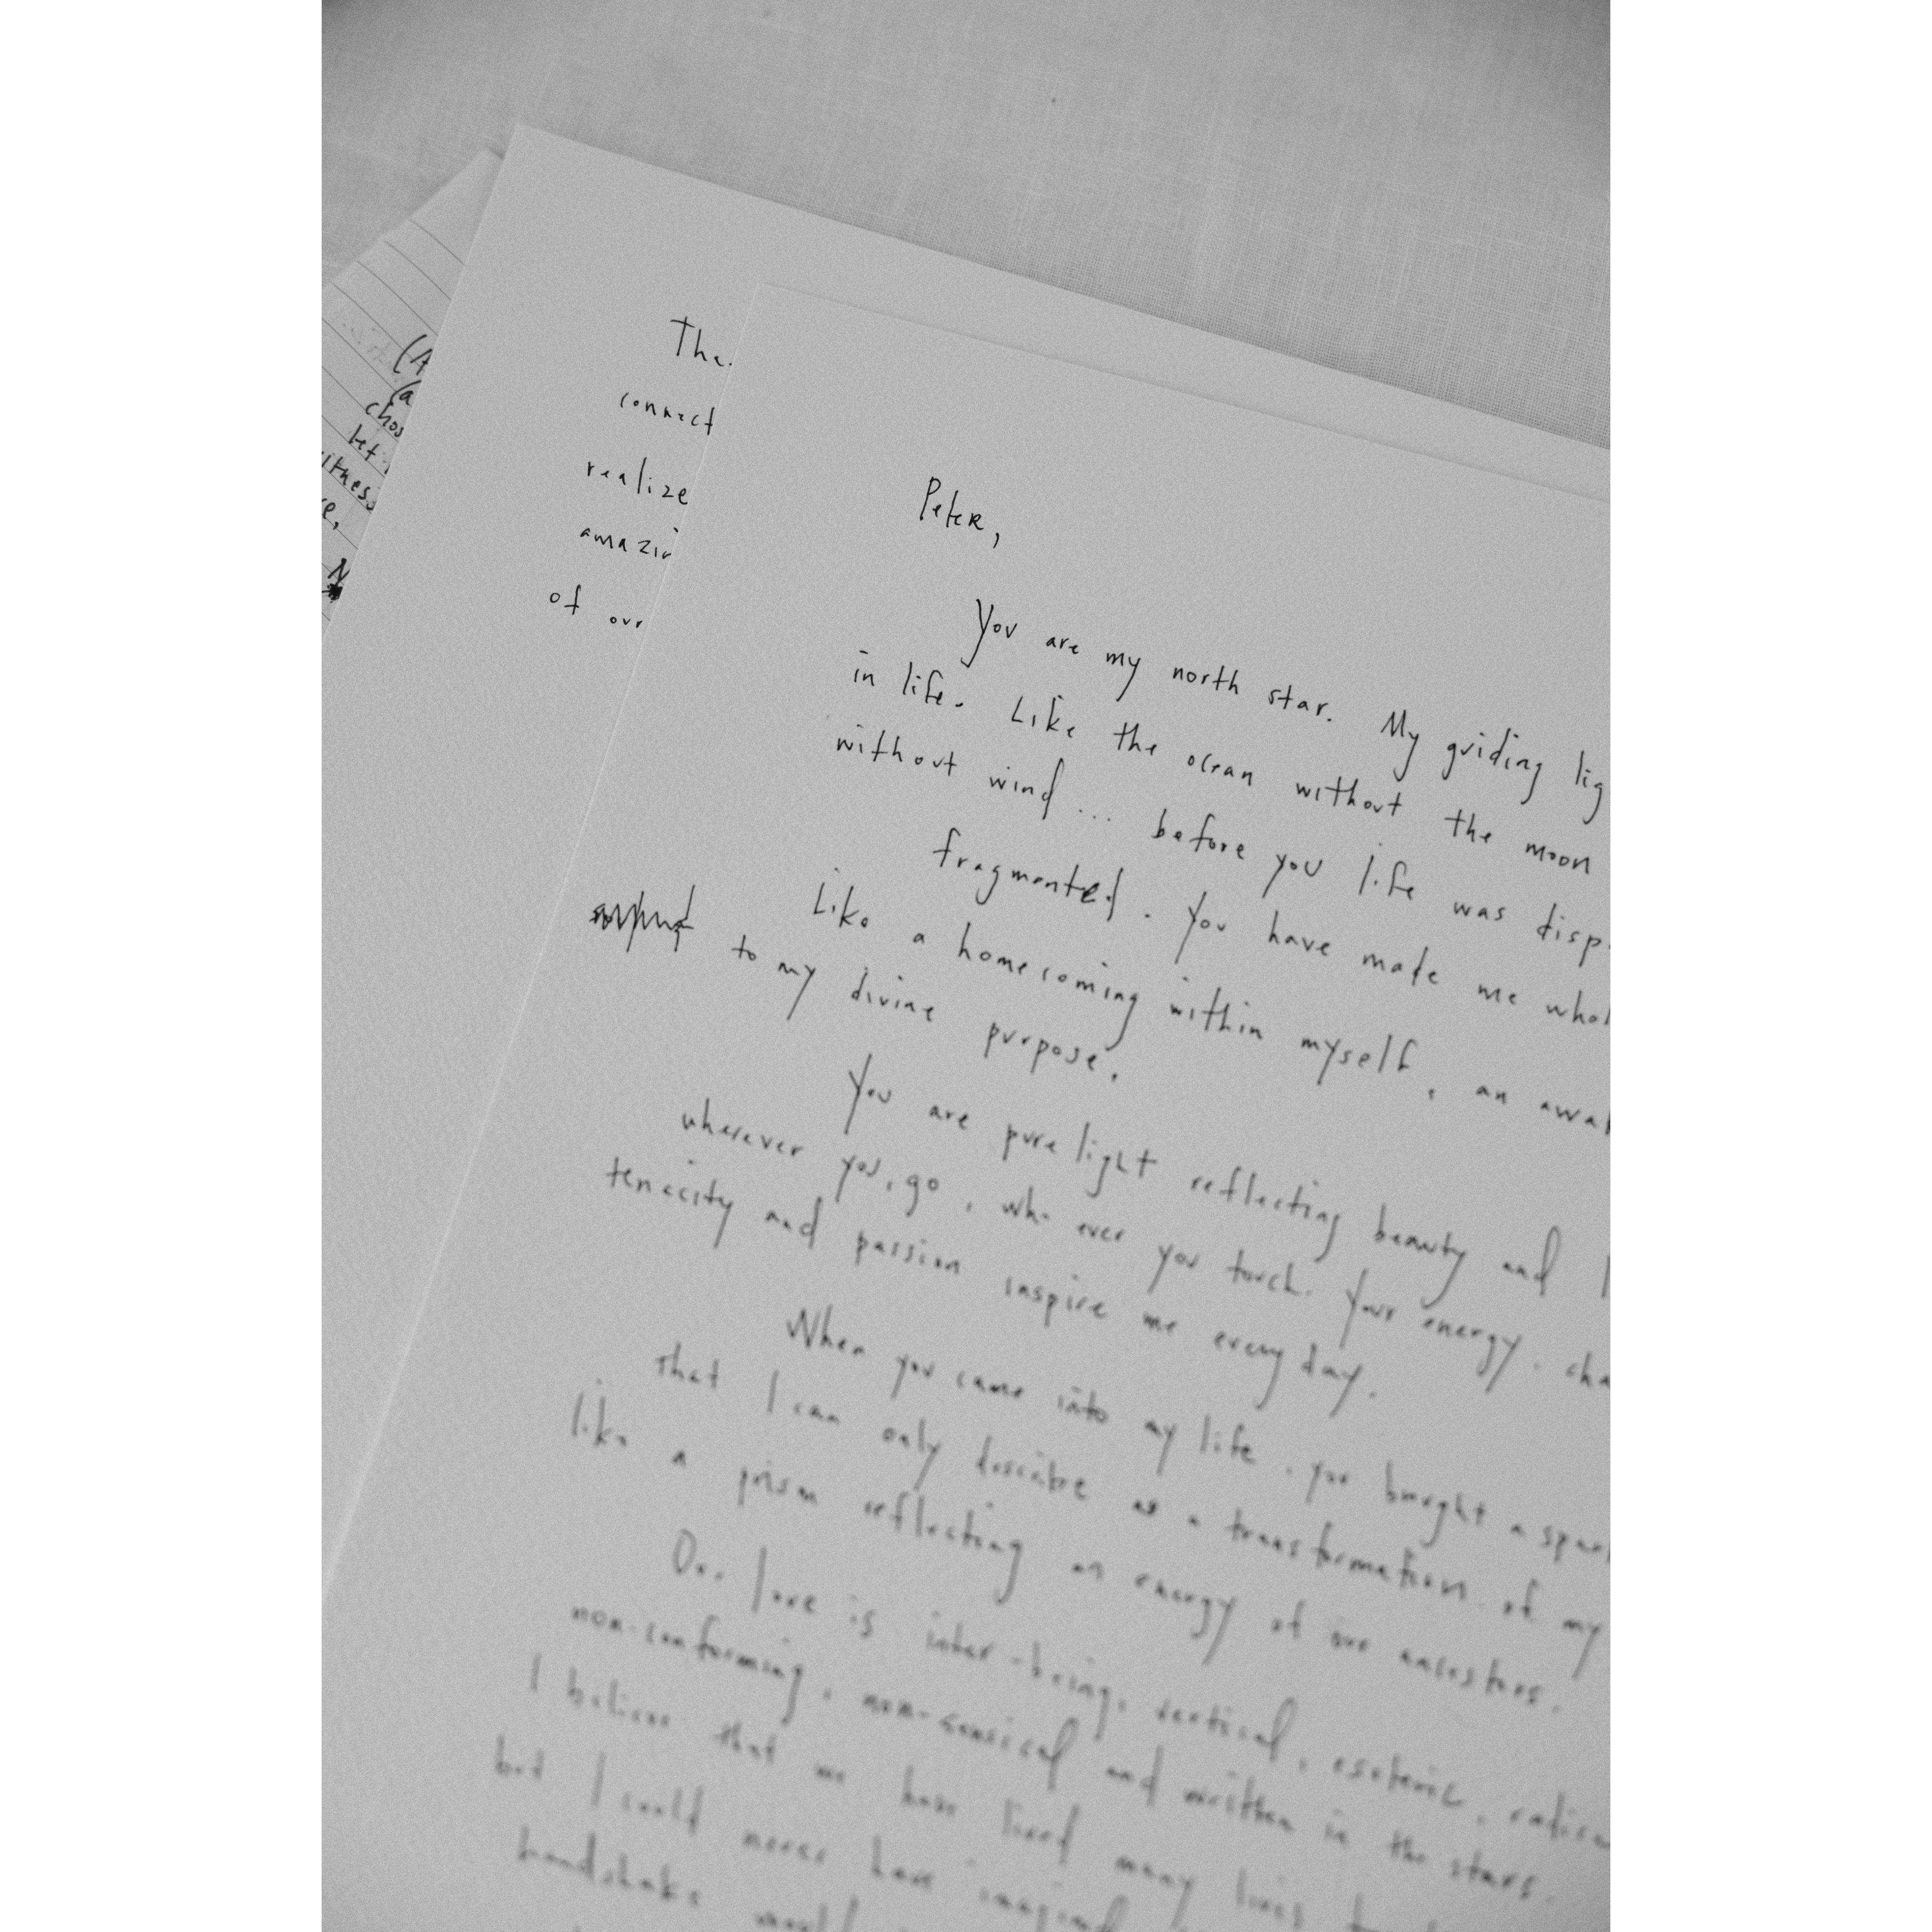 (A
(a
chos
let
itness
e,
N
Tha
connect
realize
amazin
of our
Peter,
You are my north star. My guiding lig
in life. Like the ocean without the moon
without wind... before you life was disp
fragmented. You have made me whol
Like a homecoming within myself, an awak
to my divine purpose.
You are pure light reflecting beauty and l
wherever you, go, who ever you touch. Your energy, cha
tenacity and passion inspire me every day.
When you came into my life, you brought a spar
that I can only describe as a transformation of my
like a prism reflecting an energy of our ancestors.
Our love is inter-being, vertical, esoteric, radica
non-conforming, non-sensical and written in the stars.
I believe that we have lived many lives
but I could never have imagined
handshake would